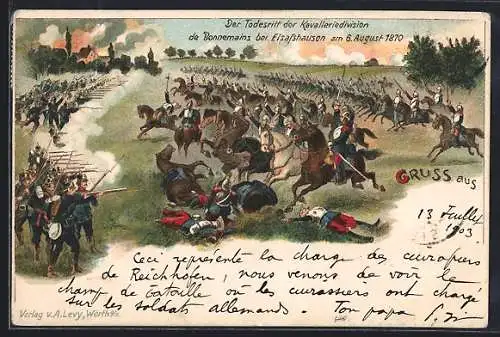 Der Todesritt der Kavalleriedivision
de Bonnemains bei Elsaßhausen am 6. August 1870
GRUSS aus
13 Juillet
1903
Ceci représente la charge des cuirassiers
de Reichhofen, nous venons de voir le
champ de bataille où les cuirassiers ont chargé
sur les soldats allemands. Ton papa
Verlag v. A. Levy, Wörth a/S.